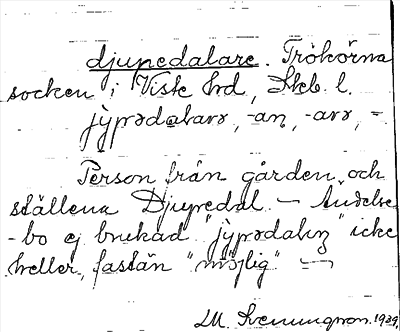 djupedalare. Trökörna
socken i Viste hrd, Skb. l.
jÿpədalarə, -an, -arə, -
Person från gården och
ställena Djupedal —
-bo ej brukad "jÿpədaliŋ" icke
heller, fastän "möjlig" —
LM Svenungsson. 1939